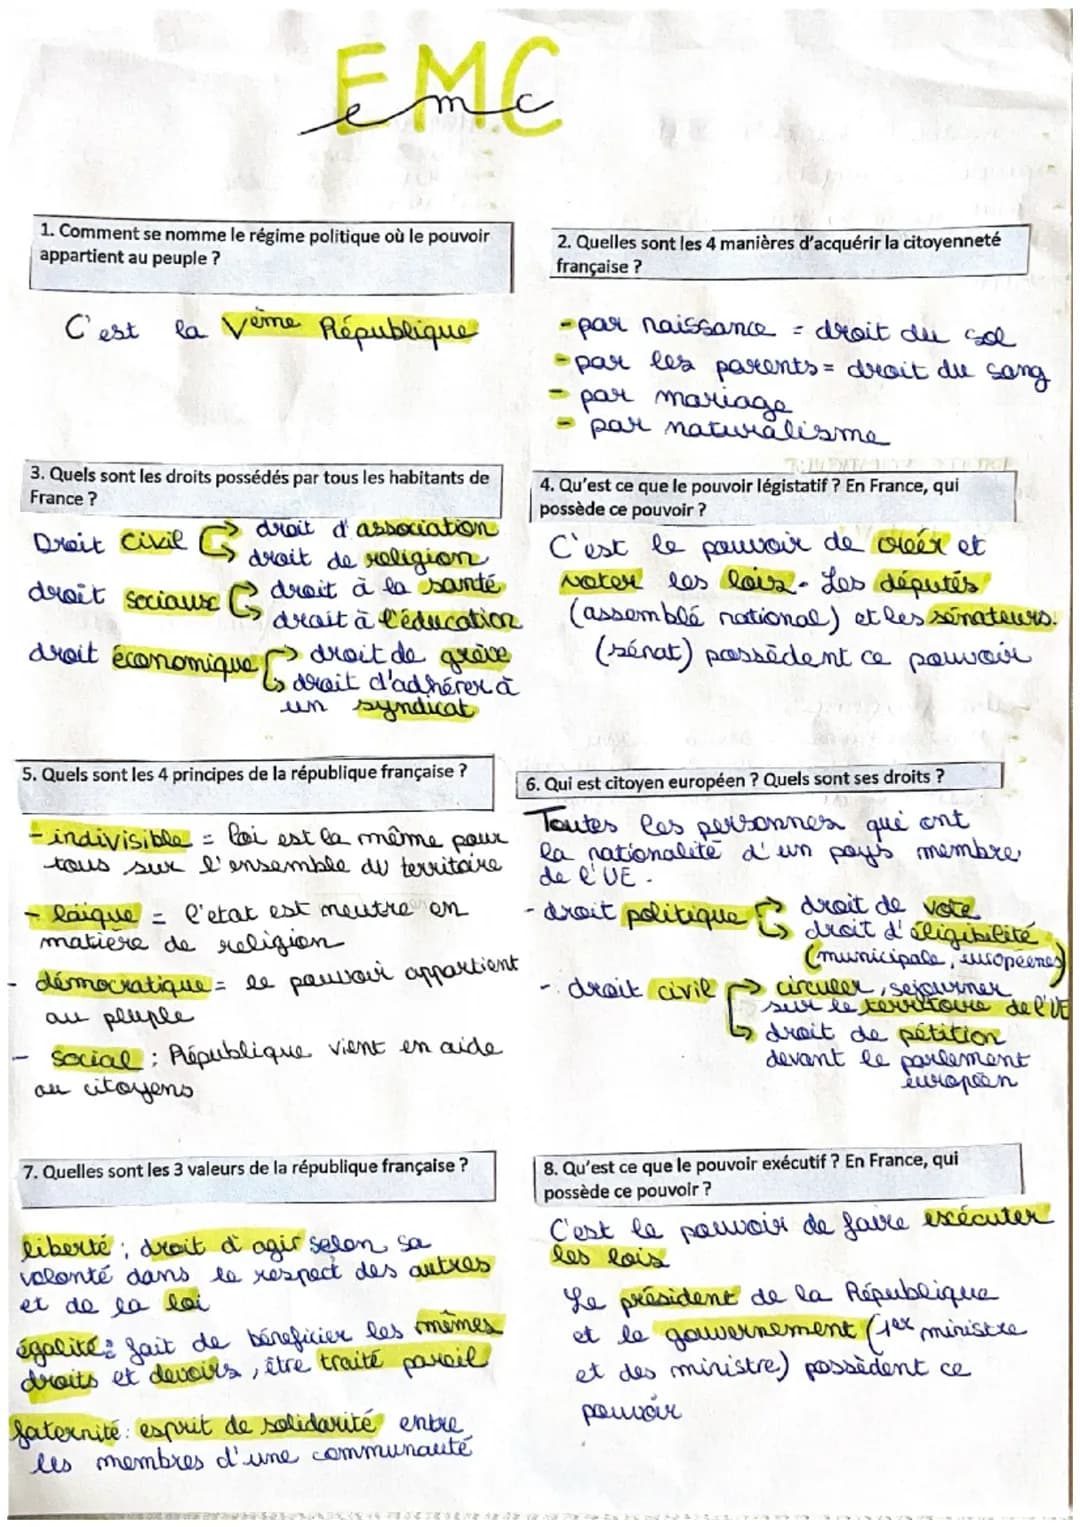 EMC
emc
1. Comment se nomme le régime politique où le pouvoir
appartient au peuple ?
C'est la Vème République
2. Quelles sont les 4 manières d'acquérir la citoyenneté
française ?
- par naissance = droit du sol
- par les parents = droit du sang
- par mariage
- par naturalisme
3. Quels sont les droits possédés par tous les habitants de
France ?
Droit civil → droit d'association
→ droit de religion
droit sociaux → droit à la santé
→ droit à l'éducation
droit économique → droit de grève
→ droit d'adhérer à
un syndicat
4. Qu'est ce que le pouvoir légistatif ? En France, qui
possède ce pouvoir ?
C'est le pouvoir de créér et
voter les lois. Les députés
(assemblé national) et les sénateurs.
(sénat) possèdent ce pouvoir
5. Quels sont les 4 principes de la république française ?
- indivisible = loi est la même pour
tous sur l'ensemble du territoire
- laïque = l'etat est neutre en
matière de religion
- démocratique = le pouvoir appartient
au peuple
- social : République vient en aide
au citoyens
6. Qui est citoyen européen ? Quels sont ses droits ?
Toutes les personnes qui ont
la nationalité d'un pays membre
de l'UE.
- droit politique → droit de vote
→ droit d'éligibilité
(municipale, européenes)
- droit civil → circuler, sejourner
sur le territoire de l'UE
→ droit de pétition
devant le parlement
européen
7. Quelles sont les 3 valeurs de la république française ?
liberté : droit d'agir selon sa
volonté dans le respect des autres
et de la loi
égalité : fait de bénéficier les mêmes
droits et devoirs, être traité pareil
faternité : esprit de solidarité entre
les membres d'une communauté
8. Qu'est ce que le pouvoir exécutif ? En France, qui
possède ce pouvoir ?
C'est le pouvoir de faire exécuter
les lois
Le président de la République
et le gouvernement (1er ministre
et des ministre) possèdent ce
pouvoir